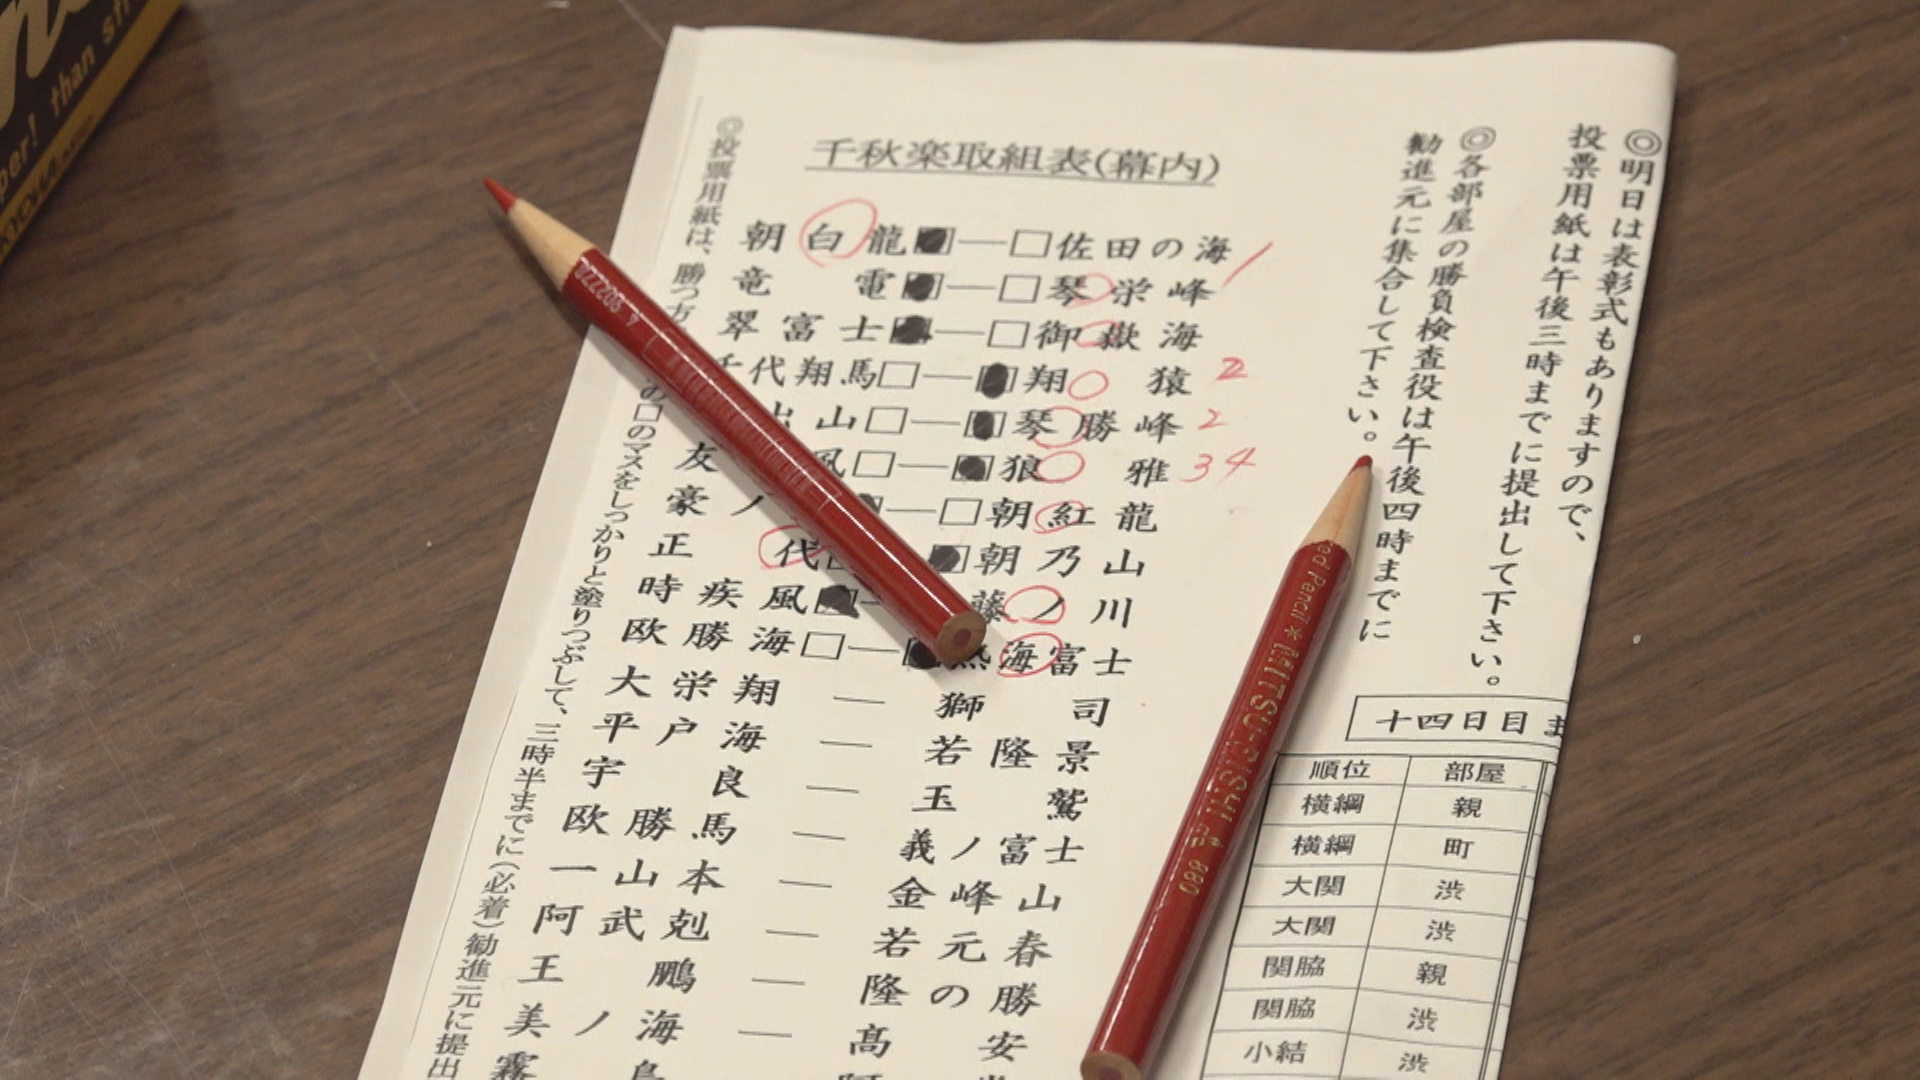 ◎明日は表彰式もありますので、
投票用紙は午後三時までに提出して下さい。
◎各部屋の勝負検査役は午後四時までに
勧進元に集合して下さい。
千秋楽取組表(幕内)
朝白龍■―□佐田の海
竜電■―□琴栄峰
翠富士■―□御嶽海
千代翔馬□―■翔猿 2
山□―■琴勝峰 2
友風□―■狼雅 34
豪ノ―□朝紅龍
正代―■朝乃山
時疾風■―藤ノ川
欧勝海□―■熱海富士
大栄翔―獅司
平戸海―若隆景
宇良―玉鷲
欧勝馬―義ノ富士
一山本―金峰山
阿武剋―若元春
王鵬―隆の勝
美ノ海―髙安
霧島
◎投票用紙は、勝つ方
の□のマスをしっかりと塗りつぶして、三時半までに(必着)勧進元に提出
十四日目
順位 部屋
横綱 親
横綱 町
大関 渋
大関 渋
関脇 親
関脇 渋
小結 渋
MITSU-BISHI
880
902772
than